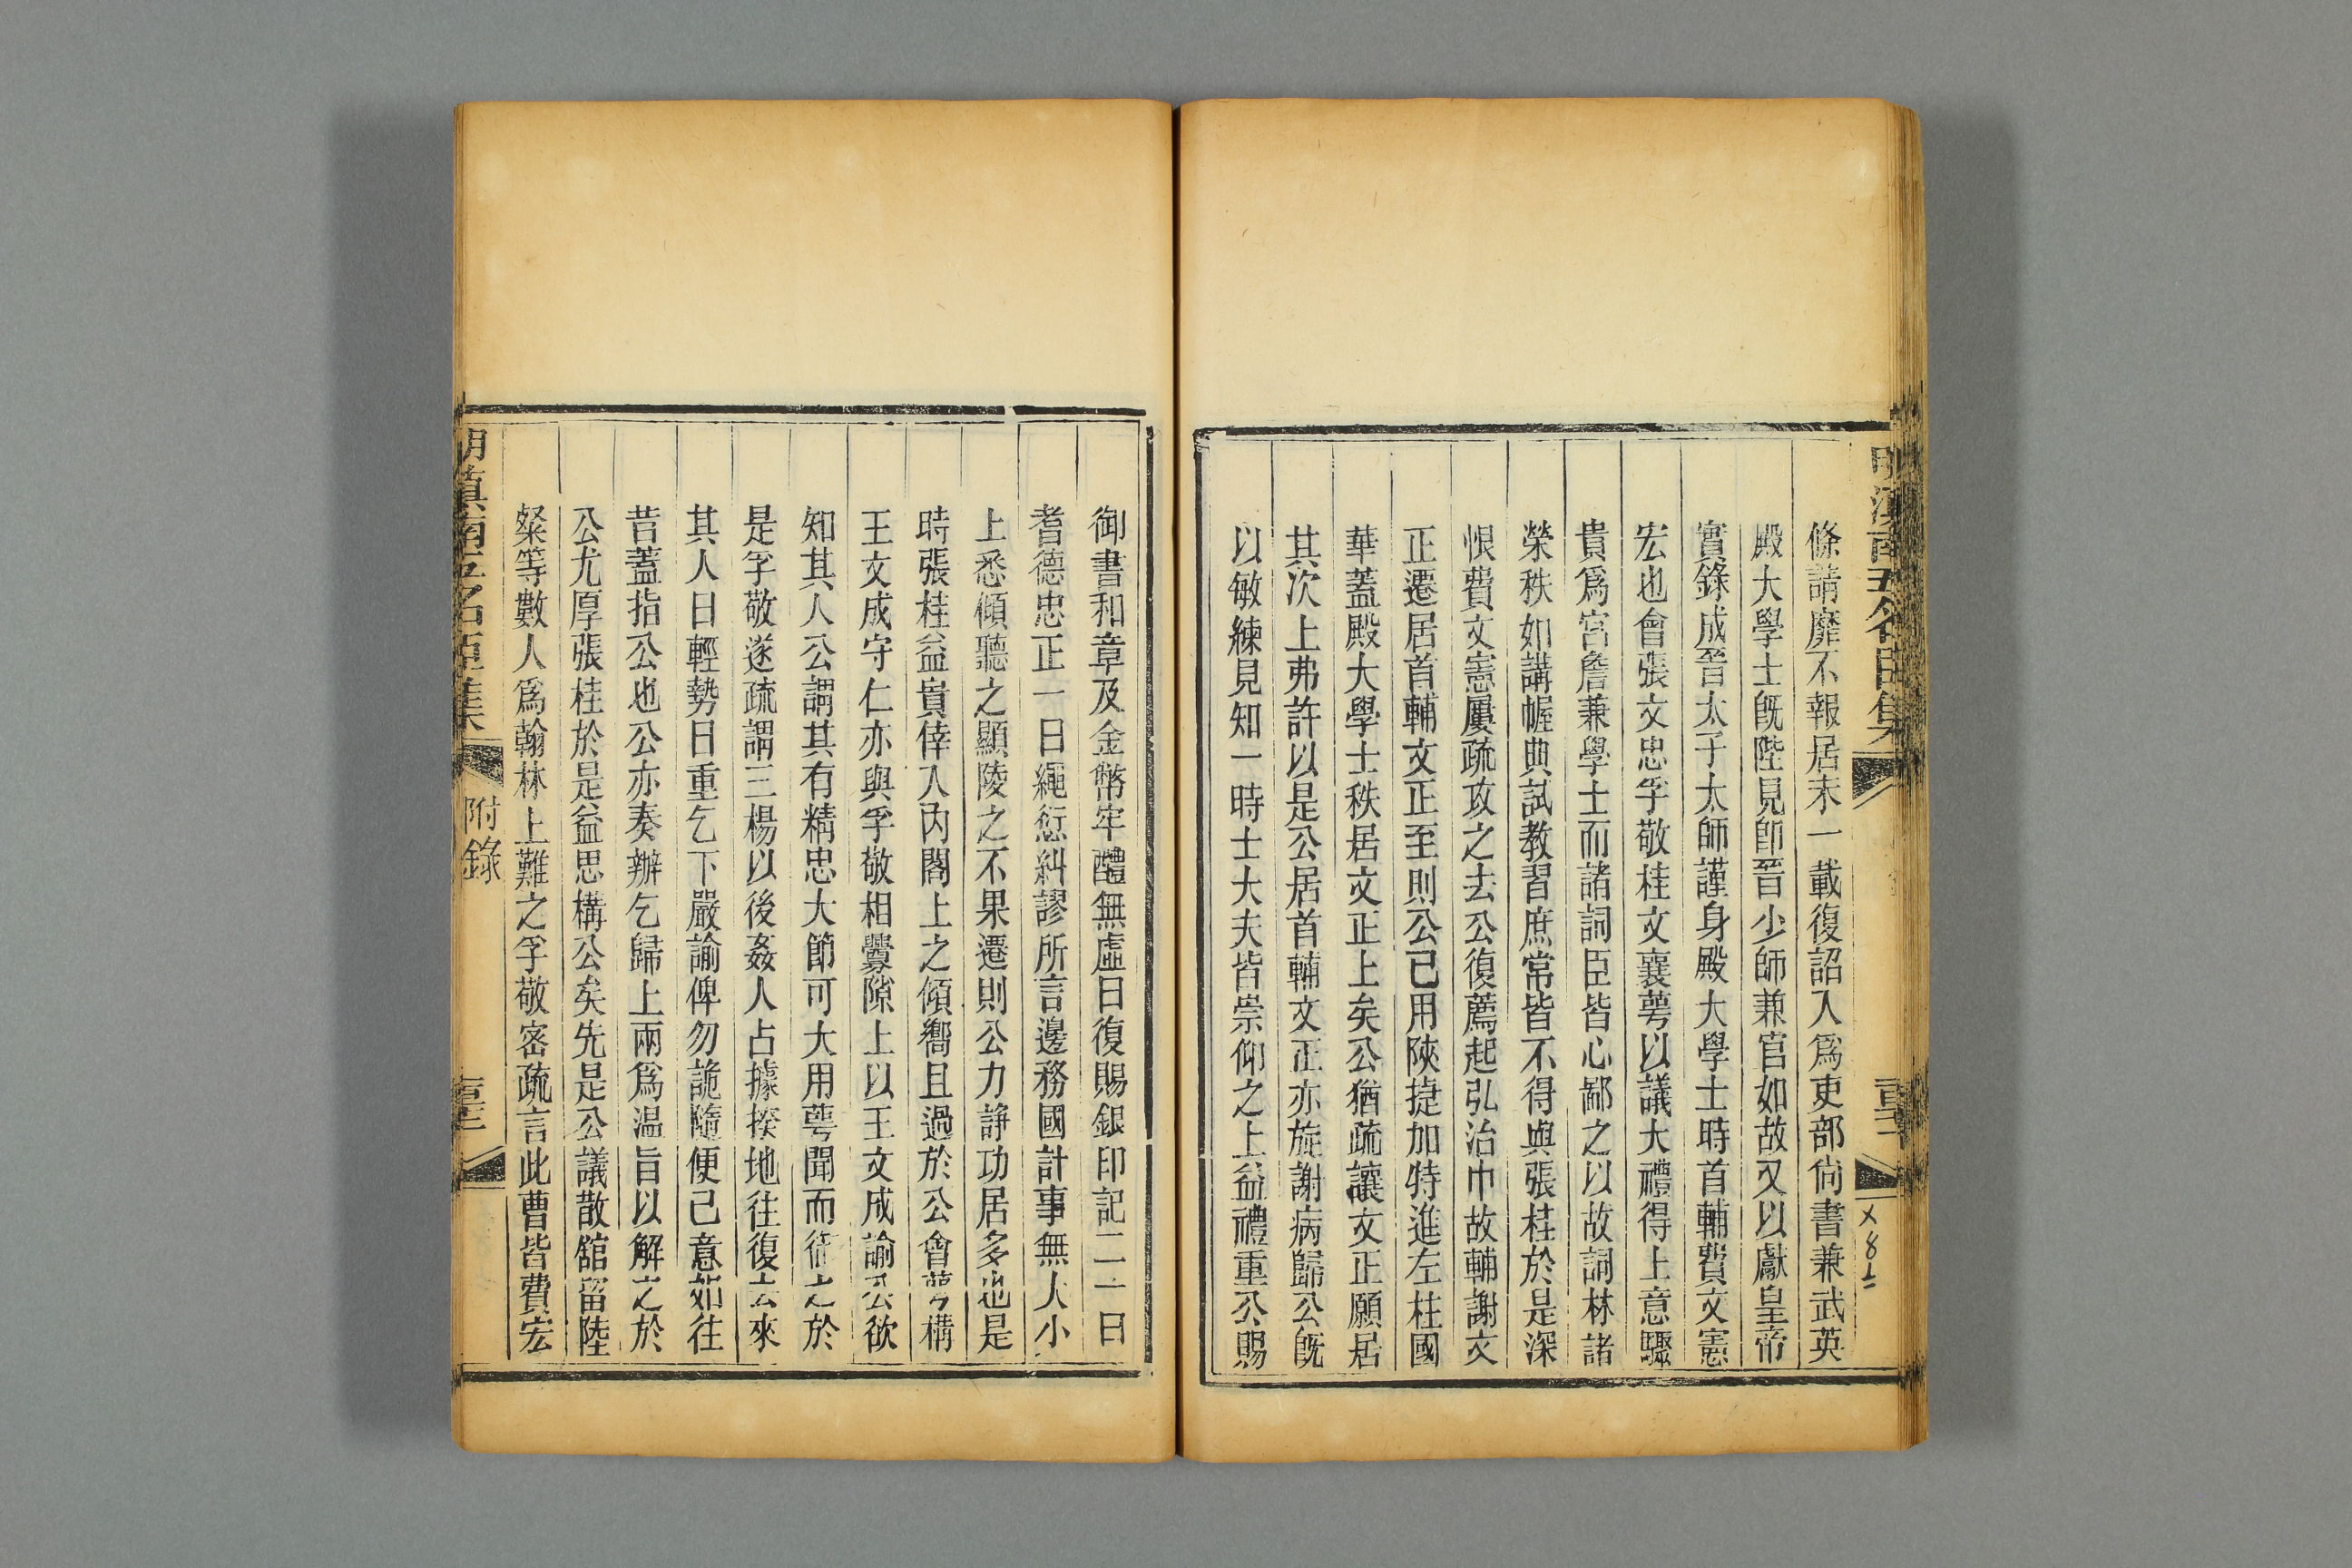 條請靡不報居未一載復詔入爲吏部尙書兼武英
殿大學士旣陛見卽晉少師兼官如故又以獻皇帝
實錄成晉太子太師謹身殿大學士時首輔費文憲
宏也會張文忠孚敬桂文襄蕚以議大禮得上意驟
貴爲宮詹兼學士而諸詞臣皆心鄙之以故詞林諸
榮秩如講幄典試敎習庶常皆不得與張桂於是深
恨費文憲屢疏攻之去公復薦起弘治中故輔謝文
正遷居首輔文正至則公已用陝捷加特進左柱國
華蓋殿大學士秩居文正上矣公猶疏讓文正願居
其次上弗許以是公居首輔文正亦旋謝病歸公旣
以敏練見知一時士大夫皆崇仰之上益禮重公賜
御書和章及金幣牢醴無虛日復賜銀印記二一曰
耆德忠正一曰繩愆糾謬所言邊務國計事無大小
上悉傾聽之顯陵之不果遷則公力諍功居多也是
時張桂益貴倖入內閣上之傾嚮且過於公會蕚構
王文成守仁亦與孚敬相釁隙上以王文成諭公欲
知其人公謂其有精忠大節可大用蕚聞而銜之於
是孚敬遂疏謂三楊以後姦人占據揆地往復去來
其人日輕勢日重乞下嚴諭俾勿詭隨便己意如往
昔蓋指公也公亦奏辦乞歸上兩爲温旨以解之於
公尤厚張桂於是益思構公矣先是公議散舘留陸
粲等數人爲翰林上難之孚敬密疏言此曹皆費宏
明滇南五名臣集
附錄